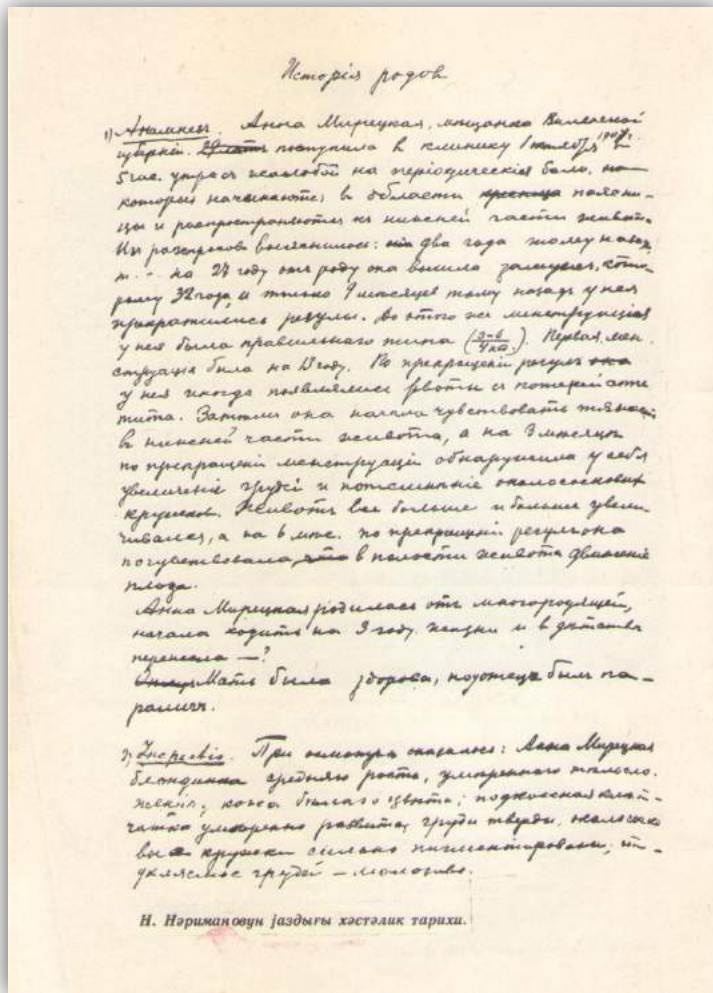 Исторія родов
1) Анамнезъ. Анна Мирецкая, мещанка Виленской
губерніи. поступила в клинику 1 октября 1907 г. в
5 час. утра с жалобой на періодическія боли,
которыя начинаются в области поясни-
цы и распространяются къ нижней части живота.
Из разспросовъ выяснилось: два года тому назад,
т. - на 28 году отъ роду она вышла замужъ, кото-
рому 32 года, и только 9 месяцев тому назадъ у нея
прекратились регулы. До этого же менструація
у нея была правильнаго типа (3-6/4 нед.). Первая мен-
струація была на 13 году. По прекращеніи регулъ она
у нея иногда появлялись рвоты съ потерей аппе
тита. Затемъ она начала чувствовать тяжесть
в нижней части живота, а на 3 месяце
по прекращеніи менструацій обнаружила у себя
увеличеніе грудей и потемненіе околососковых
кружков. Животъ все больше и больше увели-
чивался, а на 6 мес. по прекращеніи регулъ она
почувствовала, что в полости живота движеніе
плода.
Анна Мирецкая родилась отъ многородящей,
начала ходить на 3 году жизни и в детстве
перенесла —?
Мать была здорова, но отец былъ па-
раличъ.
2) Inspectio. При осмотре оказалось: Анна Мирецкая
блондинка средняго роста, умереннаго телосло-
женія; кожа белаго цвета; подкожная клет-
чатка умеренно развита; груди тверды, околососко
вые кружки сильно пигментированы,
грудей — молозиво.
Н. Нәримановун јаздығы хәстәлик тарихи.